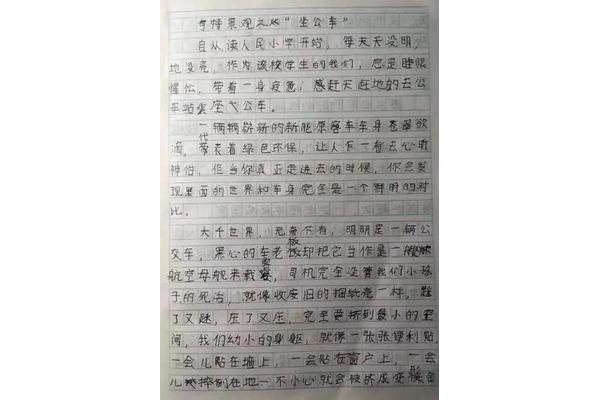 奇特景观之"坐公车"
自从读人民小学开始，每天天没明，
地没亮，作为该校学生的我们，总是睡眼
惺忪，带着一身疲惫，感赶天赶地的去公
车站座公车。
一辆辆崭新的新能原客车车身苍翠欲
滴，代表着绿色环保，让人乍一看去心旷
神怡，但当你真正走进去的时候，你会发
现里面的世界和车身完全是一个鲜明的对
比。
大千世界，无奇不有，明明是一辆公
交车，黑心的车老板却把它当作是一艘
航空母舰来载客，司机完全没管我们小孩
子的死活，就像收废旧的捆纸壳一样，
了又，压了又压，完全要挤到最小的空
间，我们幼小的身躯，就像一张张便利贴，
一会儿贴在墙上，一会贴在窗户上，一会
儿摔倒在地一不小心就会被挤成变形金